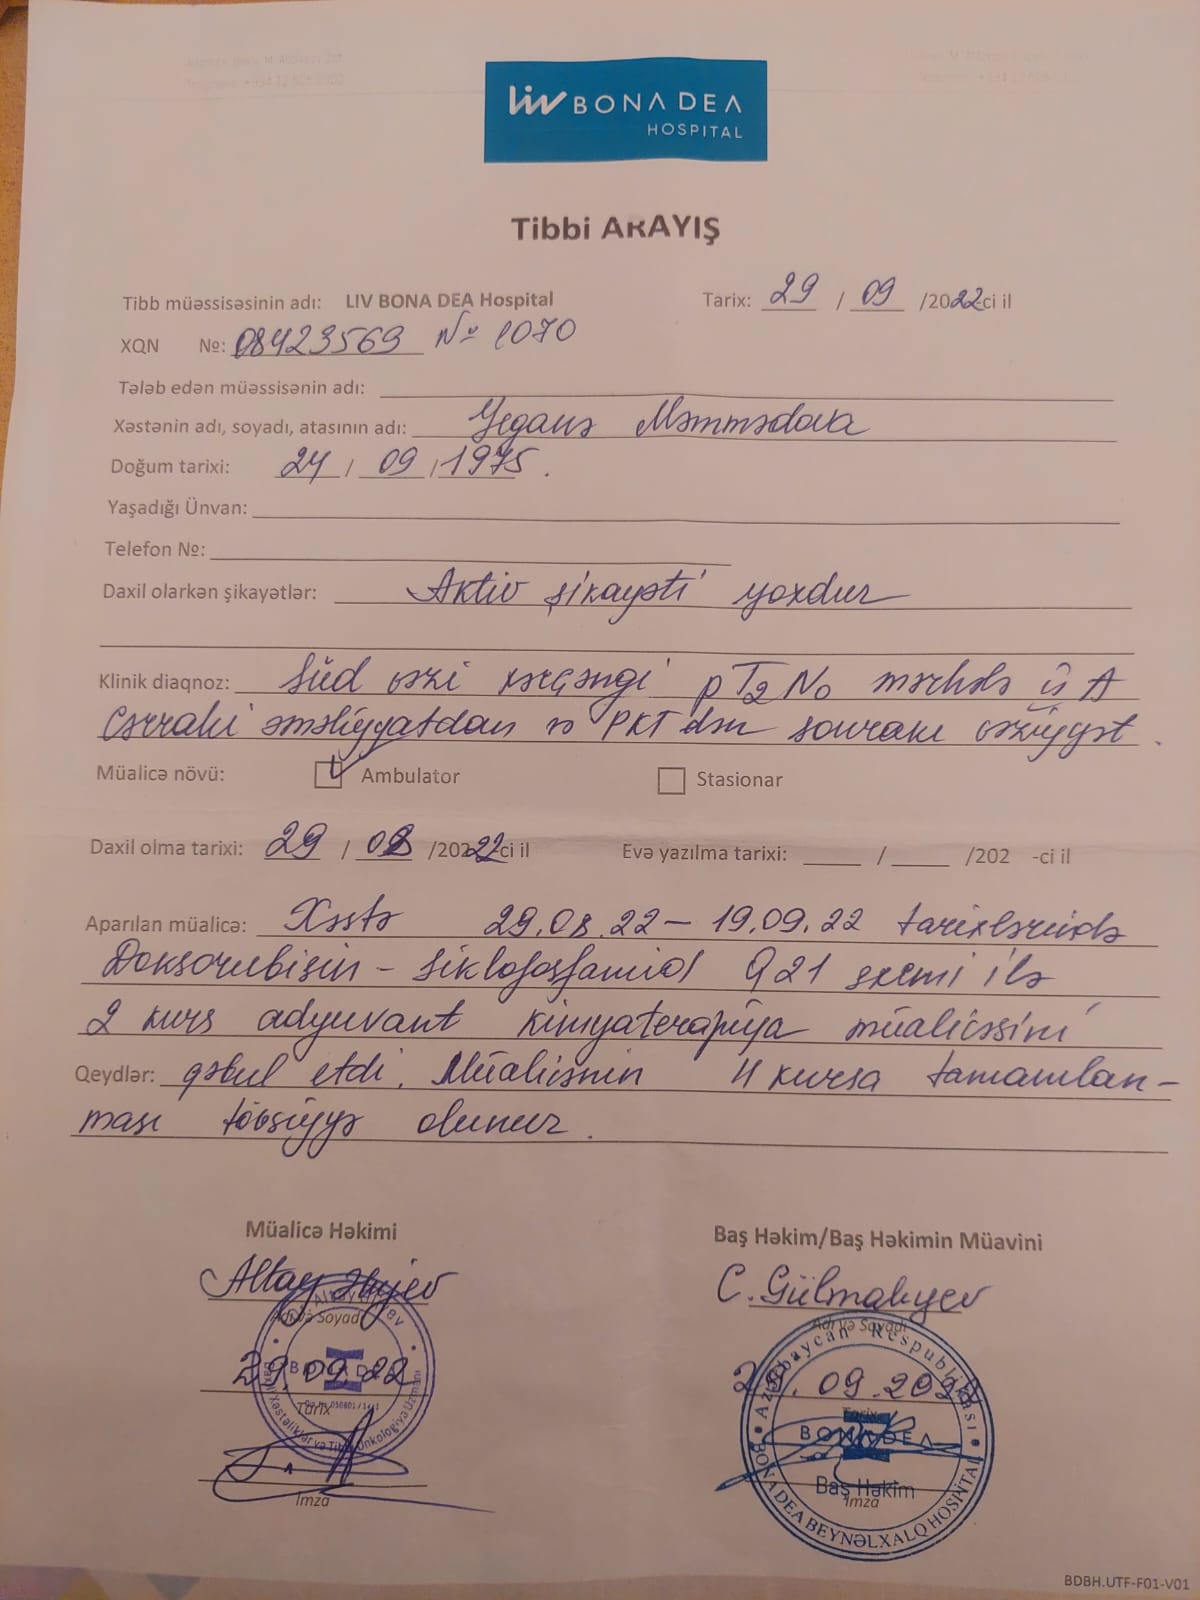 Liv BONA DEA
HOSPITAL
Tibbi ARAYIŞ
Tibb müəssisəsinin adı: LIV BONA DEA Hospital Tarix: 29 / 09 /2022-ci il
XQN №: 08423569 № 1070
Tələb edən müəssisənin adı:
Xəstənin adı, soyadı, atasının adı: Yeganə Məmmədova
Doğum tarixi: 24 / 09 / 1975.
Yaşadığı Ünvan:
Telefon №:
Daxil olarkən şikayətlər: Aktiv şikayəti yoxdur
Klinik diaqnoz: Süd vəzi xərçəngi pT2N0 mərhələ II A
Cərrahi əməliyyatdan və PKT dən sonrakı vəziyyət.
Müalicə növü: Ambulator Stasionar
Daxil olma tarixi: 29 / 08 /2022-ci il Evə yazılma tarixi: / /202 -ci il
Aparılan müalicə: Xəstə 29.08.22 – 19.09.22 tarixlərində
Doksorubisin – siklofosfamid Q21 sxemi ilə
2 kurs adyuvant kimyaterapiya müalicəsini
Qeydlər: qəbul etdi. Müalicənin 4 kursa tamamlan-
ması tövsiyyə olunur.
Müalicə Həkimi Baş Həkim/Baş Həkimin Müavini
Altay Əliyev C. Gülmalıyev
Adı və Soyadı Adı və Soyadı
29.09.22 29.09.2022
Tarix Tarix
İmza İmza
Azərbaycan Respublikası
BONA DEA
Baş Həkim
BONA DEA BEYNƏLXALQ HOSPİTAL
BONA DEA
Daxili Xəstəliklər və Tibbi Onkologiya Uzmanı
BDBH.UTF-F01-V01